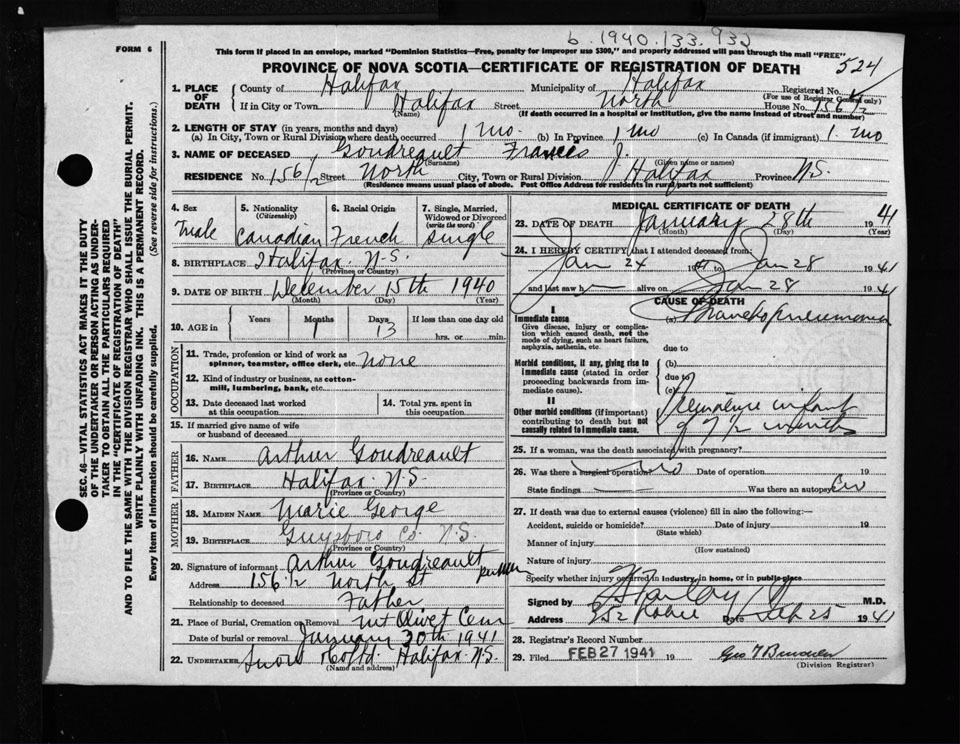 b. 1940.133.932
FORM 6
This form if placed in an envelope, marked "Dominion Statistics—Free, penalty for improper use $300," and properly addressed will pass through the mail "FREE"
PROVINCE OF NOVA SCOTIA—CERTIFICATE OF REGISTRATION OF DEATH
524
SEC. 46—VITAL STATISTICS ACT MAKES IT THE DUTY
OF THE UNDERTAKER OR PERSON ACTING AS UNDER-
TAKER TO OBTAIN ALL THE PARTICULARS REQUIRED
IN THE "CERTIFICATE OF REGISTRATION OF DEATH"
AND TO FILE THE SAME WITH THE DIVISION REGISTRAR WHO SHALL ISSUE THE BURIAL PERMIT.
WRITE PLAINLY WITH UNFADING INK. THIS IS A PERMANENT RECORD.
Every item of information should be carefully supplied. (See reverse side for instructions.)
1. PLACE OF DEATH
County of Halifax Municipality of Halifax Registered No.
(For use of Registrar General only)
If in City or Town Halifax Street North House No. 156 1/2
(Name) (If death occurred in a hospital or institution, give the name instead of street and number)
2. LENGTH OF STAY (in years, months and days)
(a) In City, Town or Rural Division where death occurred 1 mo. (b) In Province 1 mo (c) In Canada (if immigrant) 1. mo
3. NAME OF DECEASED Goudreault Francis J.
(Surname) (Given name or names)
RESIDENCE No. 156 1/2 Street North City, Town or Rural Division Halifax Province N.S.
(Residence means usual place of abode. Post Office Address for residents in rural parts not sufficient)
4. Sex
Male
5. Nationality
(Citizenship)
Canadian
6. Racial Origin
French
7. Single, Married,
Widowed or Divorced
(write the word)
Single
8. BIRTHPLACE Halifax N.S.
(Province or Country)
9. DATE OF BIRTH December 15th 1940
(Month) (Day) (Year)
10. AGE in
Years Months Days If less than one day old
1 13 hrs. or min.
OCCUPATION
11. Trade, profession or kind of work as
spinner, teamster, office clerk, etc. None
12. Kind of industry or business, as cotton-
mill, lumbering, bank, etc.
13. Date deceased last worked
at this occupation
14. Total yrs. spent in
this occupation
15. If married give name of wife
or husband of deceased
FATHER
16. NAME Arthur Goudreault
17. BIRTHPLACE Halifax N.S.
(Province or Country)
MOTHER
18. MAIDEN NAME Marie George
19. BIRTHPLACE Guysboro Co. N.S.
(Province or Country)
20. Signature of informant Arthur Goudreault
Address 156 1/2 North St
Relationship to deceased Father
21. Place of Burial, Cremation or Removal Mt Olivet Cem
Date of burial or removal January 30th 1941
22. UNDERTAKER Snow Co Ltd. Halifax N.S.
(Name and address)
MEDICAL CERTIFICATE OF DEATH
23. DATE OF DEATH January 28th 1941
(Month) (Day) (Year)
24. I HEREBY CERTIFY that I attended deceased from:
Jan 24 1941 to Jan 28 1941
and last saw h alive on Jan 28 1941
CAUSE OF DEATH
I
Immediate cause (a) Bronchopneumonia
Give disease, injury or complica-
tion which caused death, not the
mode of dying, such as heart failure,
asphyxia, asthenia, etc.
due to
Morbid conditions, if any, giving rise to
immediate cause (stated in order
proceeding backwards from im-
mediate cause).
(b)
due to
(c)
II
Other morbid conditions (if important)
contributing to death but not
causally related to immediate cause.
Premature infant
of 7 1/2 months
25. If a woman, was the death associated with pregnancy?
26. Was there a surgical operation? No Date of operation 19
State findings Was there an autopsy?
27. If death was due to external causes (violence) fill in also the following:—
Accident, suicide or homicide? Date of injury 19
(State which)
Manner of injury
(How sustained)
Nature of injury
Specify whether injury occurred in industry, in home, or in public place
Signed by M.D.
Address 352 Robie Date Feb 25 1941
28. Registrar's Record Number
29. Filed FEB 27 1941 19
(Division Registrar)